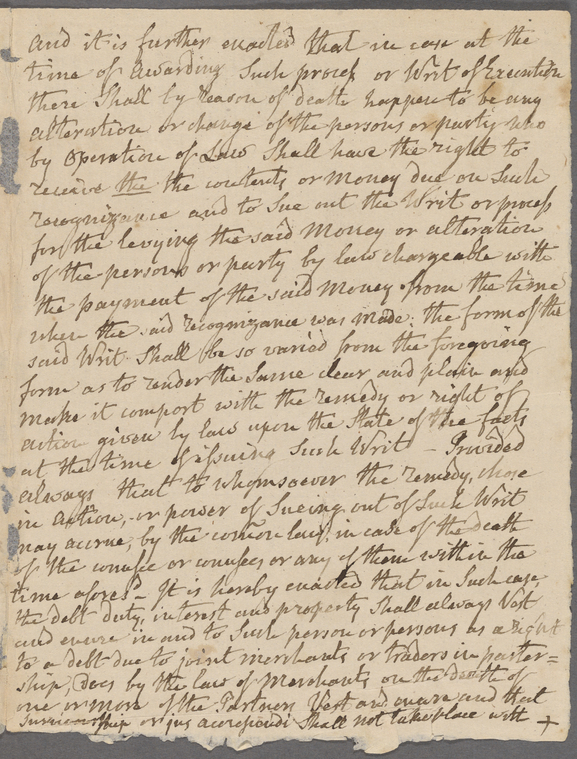 and it is further enacted that in case at the
time of awarding Such process or Writ of Execution
there Shall by reason of death happen to be any
alteration or change of the persons or party who
by Operation of Law Shall have the right to
receive the the contents or money due on Such
recognizance and to Sue out the Writ or process
for the levying the said Money or alteration
of the persons or party by law chargeable with
the payment of the said Money from the time
when the said recognizance was made; the form of the
said Writ Shall be so varied from the foregoing
form as to render the Same clear and plain and
make it comport with the remedy or right of
action given by law upon the State of the facts
at the time of issuing Such Writ – Provided
always that to whomsoever the remedy, chose
in Action, or power of Sueing out of Such Writ
may accrue, by the common law, in case of the death
of the conusee or conusees or any of them within the
time afores.d – It is hereby enacted that in Such case,
the debt duty, interest and property Shall always Vest
and enure in and to Such person or persons as a right
to a debt due to joint merchants or traders in partner=
ship, does by the law of Merchants on the death of
one or more of the Partners Vest and enure and that
Survivorship or jus accrescendi Shall not take place with +